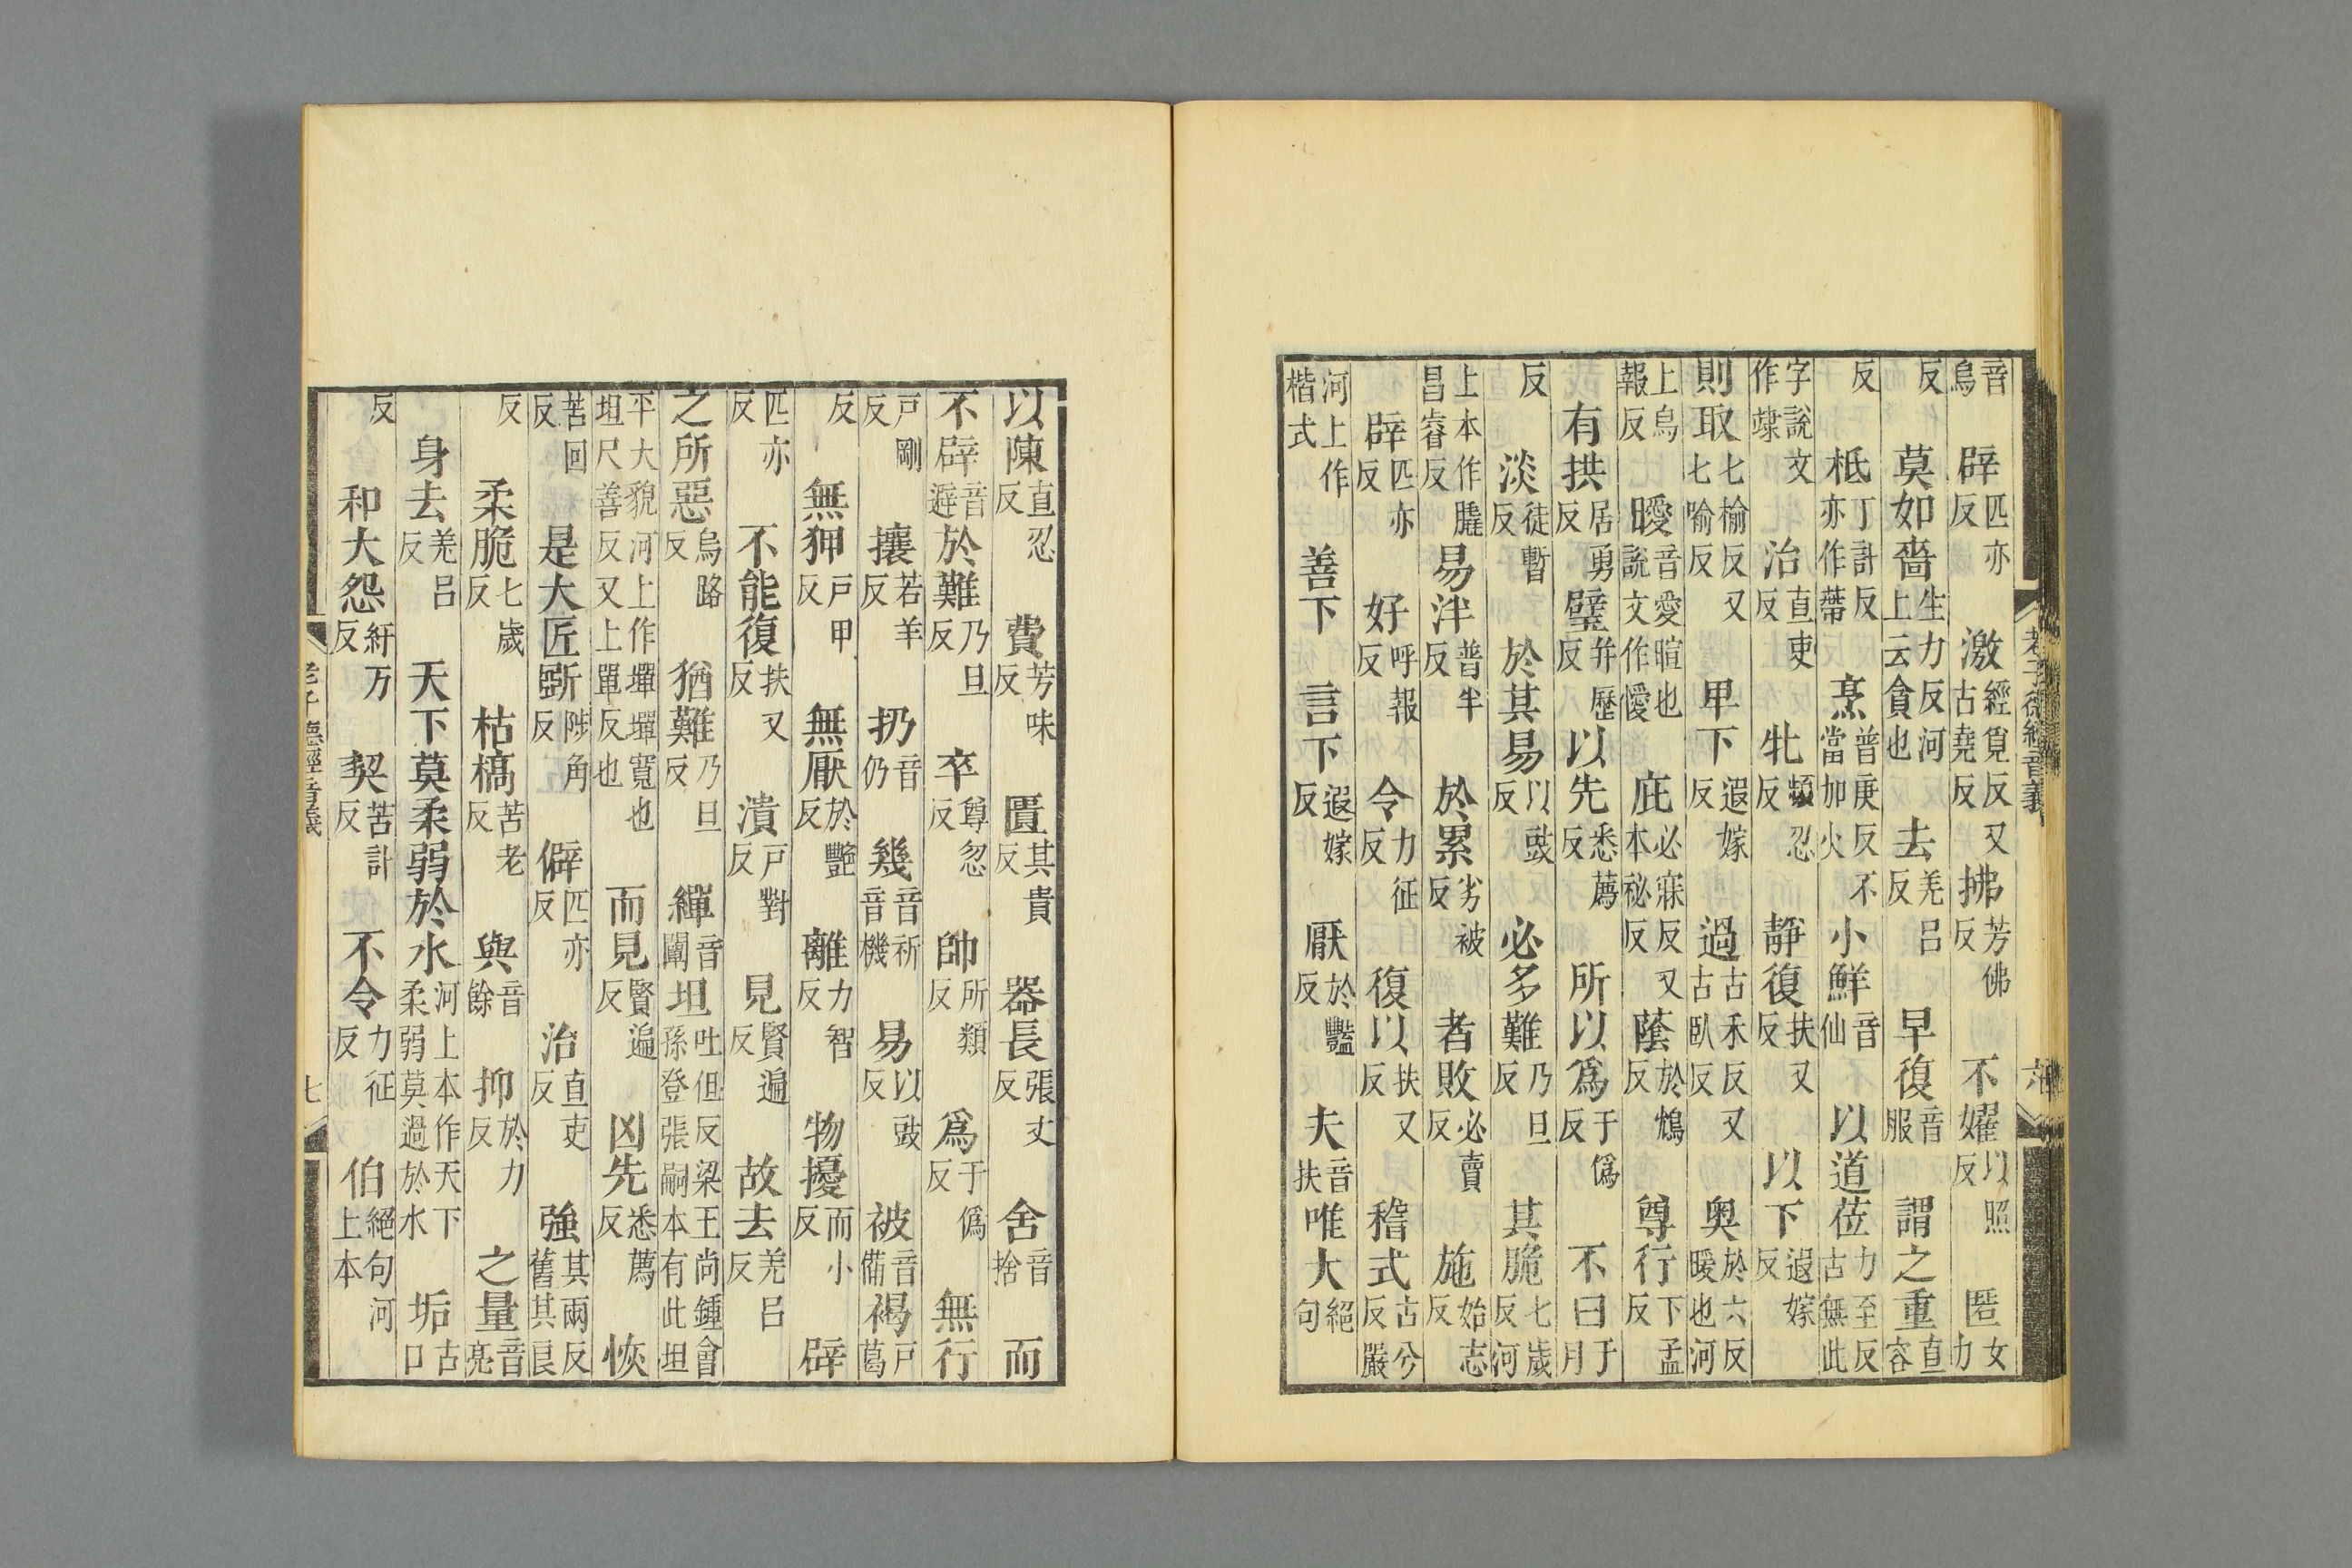 老子德經音義 六
音烏 辟匹亦反 激經覓反又古堯反 拂芳佛反 不燿以照反 匿女力
反 莫如嗇生力反河上云貪也 去羌呂反 早復音服 謂之重直容
反 柢丁計反亦作蔕 烹普庚反不當加火 小鮮音仙 以道莅力至反古無此
字說文作竦 治直吏反 牝頻忍反 靜復扶又反 以下遐嫁反
則取七榆反又七喻反 卑下遐嫁反 過古禾反又古臥反 奧於六反曖也河
上烏報反 曖音愛暄也說文作僾 庇必寐反又本祕反 蔭於鴆反 尊行下孟反
有拱居勇反 璧并歷反 以先悉薦反 所以爲于僞反 不曰于月
反 淡徒暫反 於其易以豉反 必多難乃旦反 其脆七歲反河
上本作膬昌睿反 易泮普半反 於累劣被反 者敗必賣反 施始志反
辟匹亦反 好呼報反 令力征反 復以扶又反 稽式古兮反嚴
河上作楷式 善下 言下遐嫁反 厭於豔反 夫音扶 唯大絕句
以陳直忍反 費芳味反 匱其貴反 器長張丈反 舍音捨 而
不辟音避 於難乃旦反 卒尊忽反 帥所類反 爲于僞反 無行
戶剛反 攘若羊反 扔音仍 幾音祈音機 易以豉反 被音備 褐戶葛
反 無狎戶甲反 無厭於艷反 離力智反 物擾而小反 辟
匹亦反 不能復扶又反 潰戶對反 見賢遍反 故去羌呂反
之所惡烏路反 猶難乃旦反 繟音闡 坦吐但反梁王尚鍾會孫登張嗣本有此坦
平大貌河上作墠墠寬也坦尺善反又上單反也 而見賢遍反 凶先悉薦反 恢
苦回反 是大匠斲陟角反 僻匹亦反 治直吏反 強其兩反舊其良
反 柔脆七歲反 枯槁苦老反 與音餘 抑於力反 之量音亮
身去羌呂反 天下莫柔弱於水河上本作天下柔弱莫過於水 垢古口
反 和大怨紆万反 契苦計反 不令力征反 伯絕句河上本
老子德經音義 七